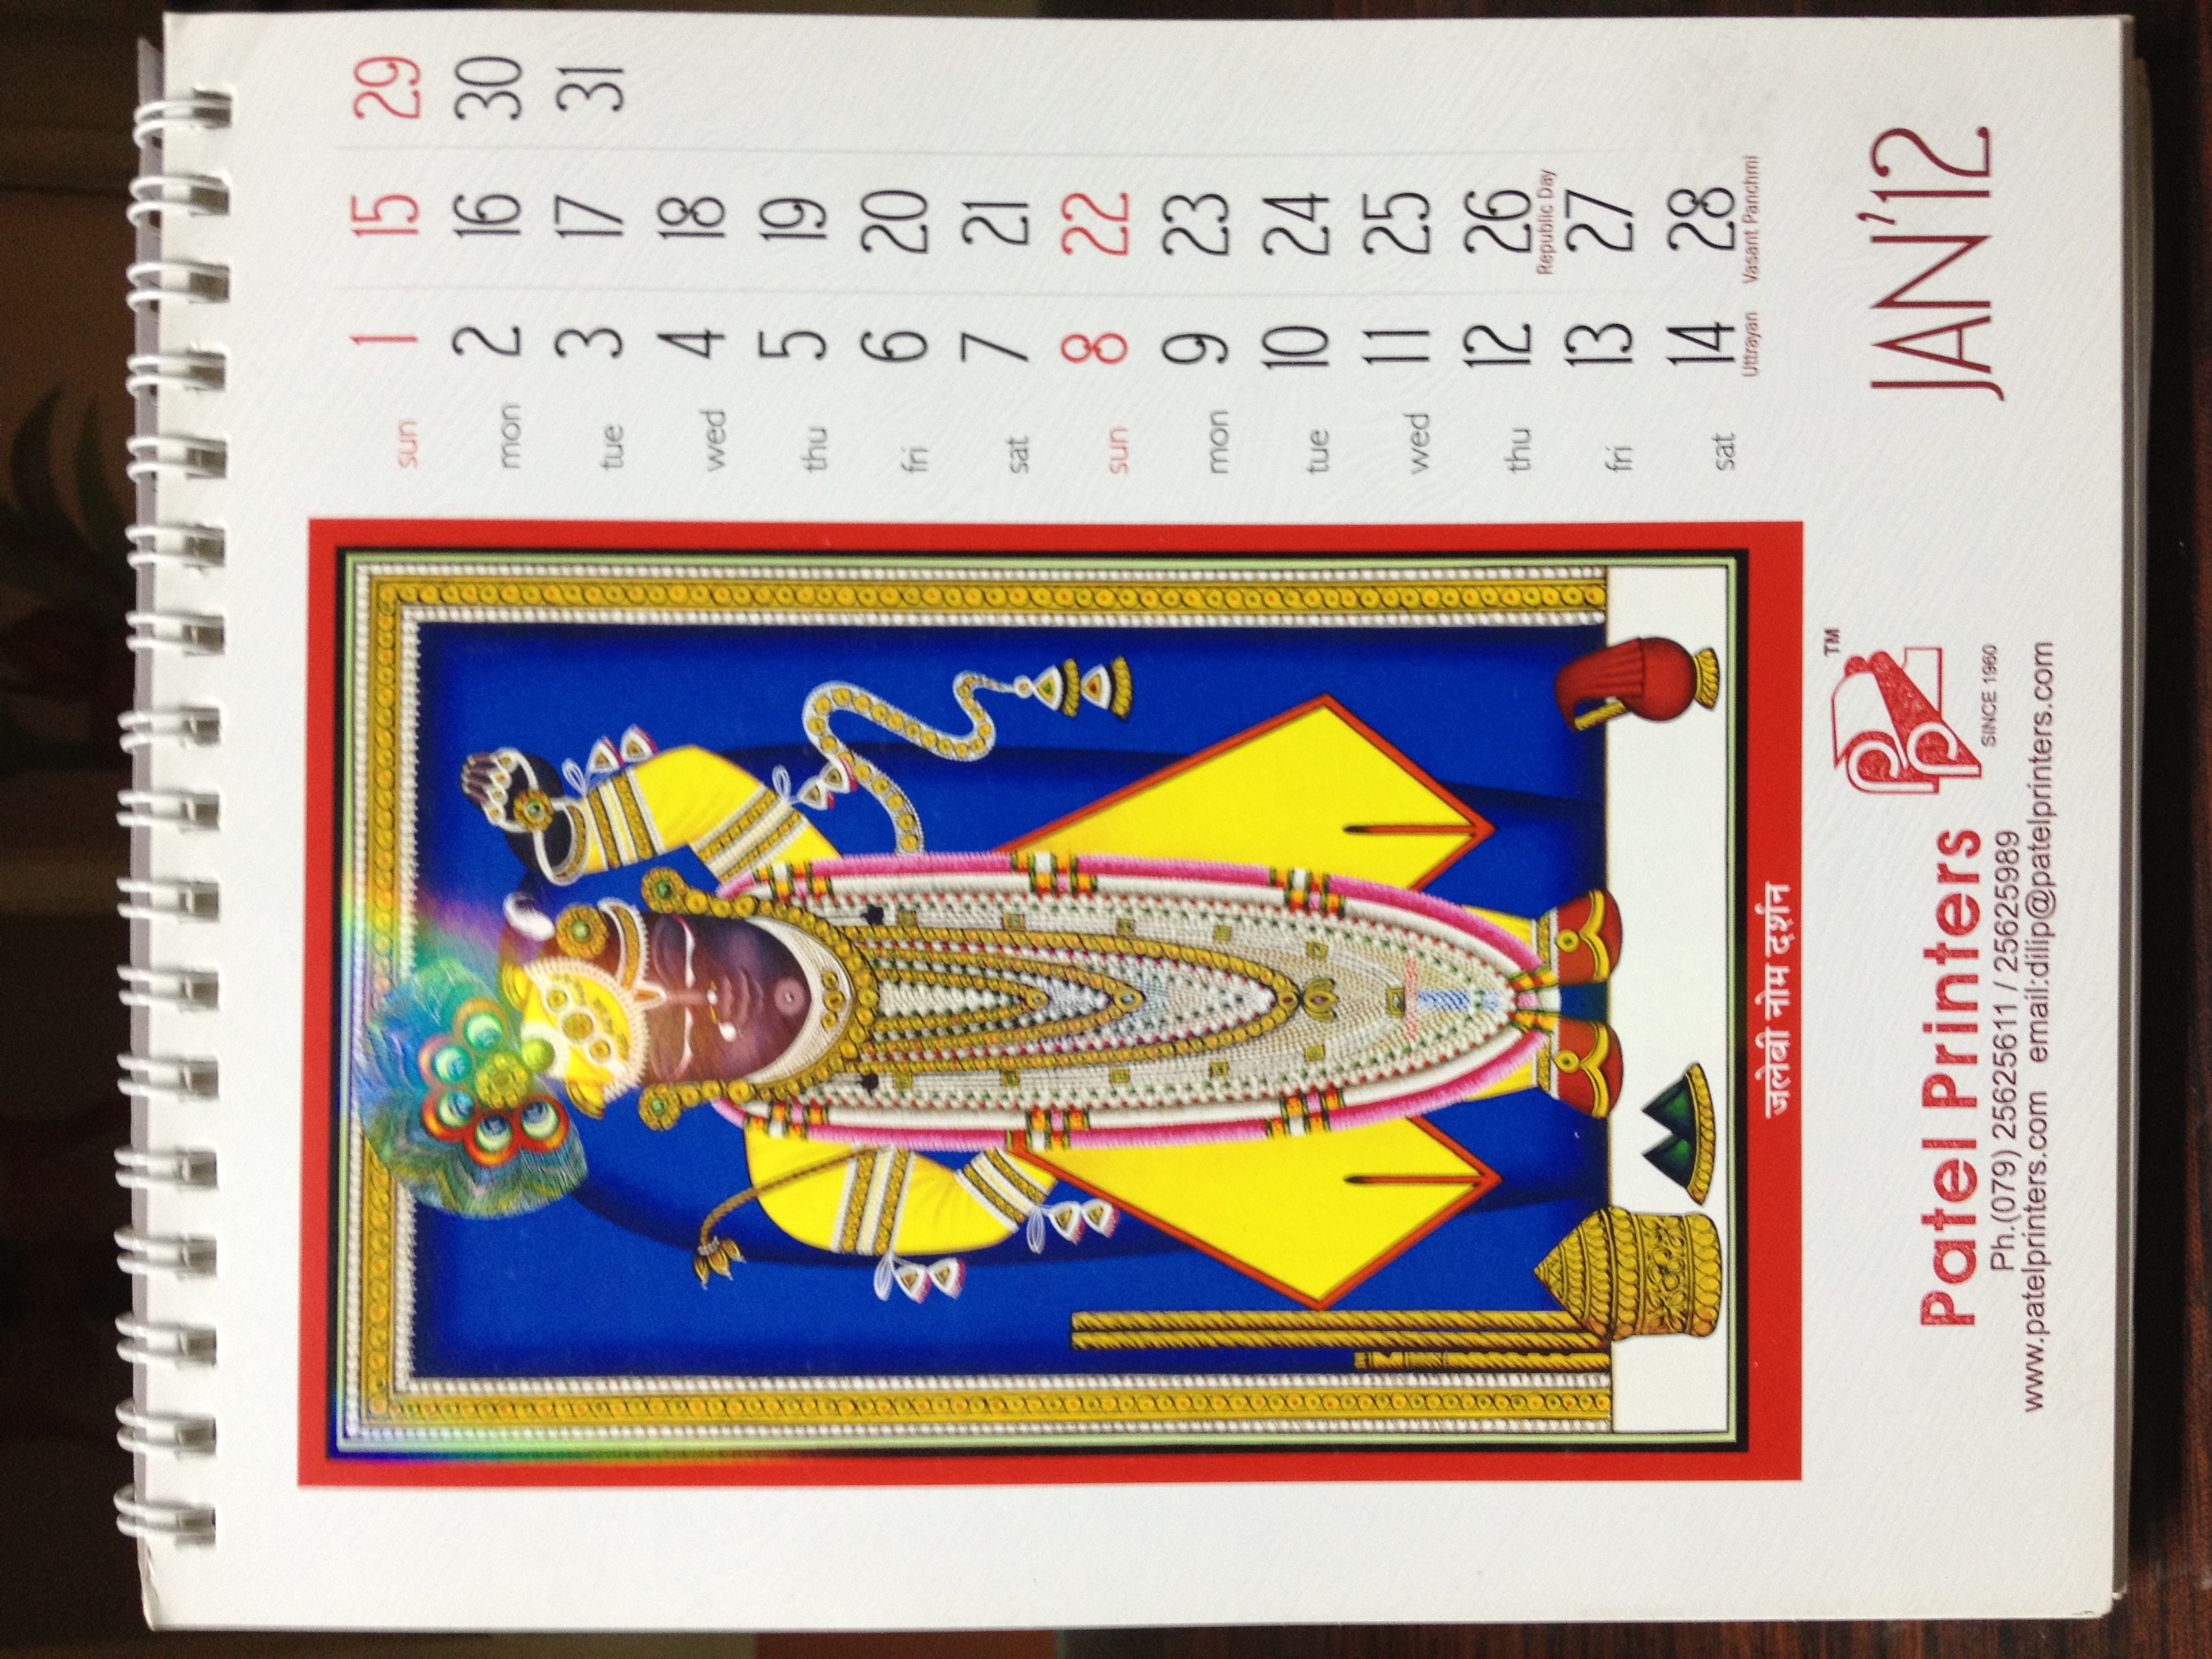 sun 1 15 29
mon 2 16 30
tue 3 17 31
wed 4 18
thu 5 19
fri 6 20
sat 7 21
sun 8 22
mon 9 23
tue 10 24
wed 11 25
thu 12 26
Republic Day
fri 13 27
sat 14 28
Uttrayan Vasant Panchmi
जलेबी नोम दर्शन
JAN'12
Patel Printers
PP TM
SINCE 1960
Ph.(079) 25625611 / 25625989
www.patelprinters.com email:dilip@patelprinters.com